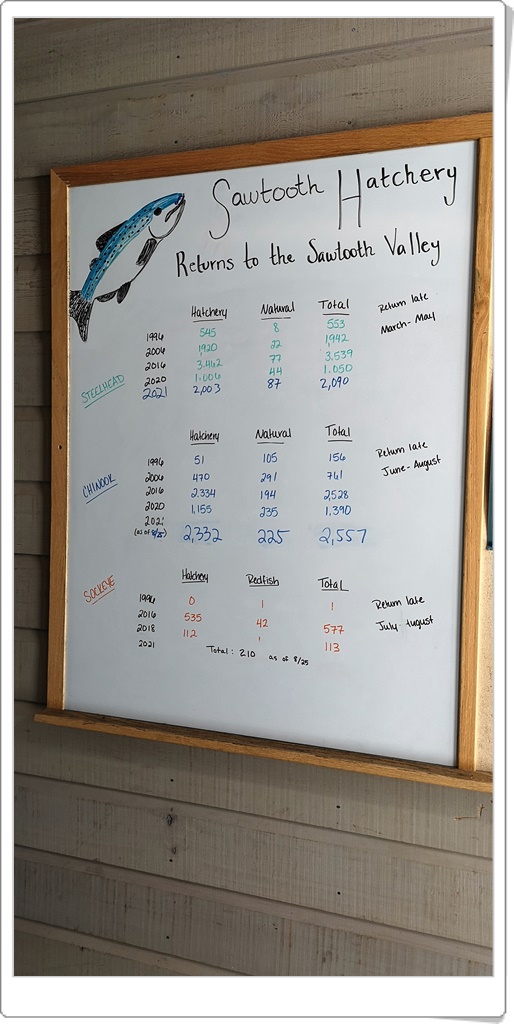 Sawtooth Hatchery
Returns to the Sawtooth Valley
Hatchery Natural Total Return late
1996 545 8 553 March-May
2006 1,920 22 1,942
2016 3,462 77 3,539
2020 1,006 44 1,050
STEELHEAD 2021 2,003 87 2,090
Hatchery Natural Total Return late
1996 51 105 156 June-August
CHINOOK 2006 470 291 761
2016 2,334 194 2,528
2020 1,155 235 1,390
2021
(as of 8/25) 2,332 225 2,557
SOCKEYE Hatchery Redfish Total
1996 0 1 1 Return late
2016 535 42 577 July-August
2018 112 1 113
2021 Total: 210 as of 8/25